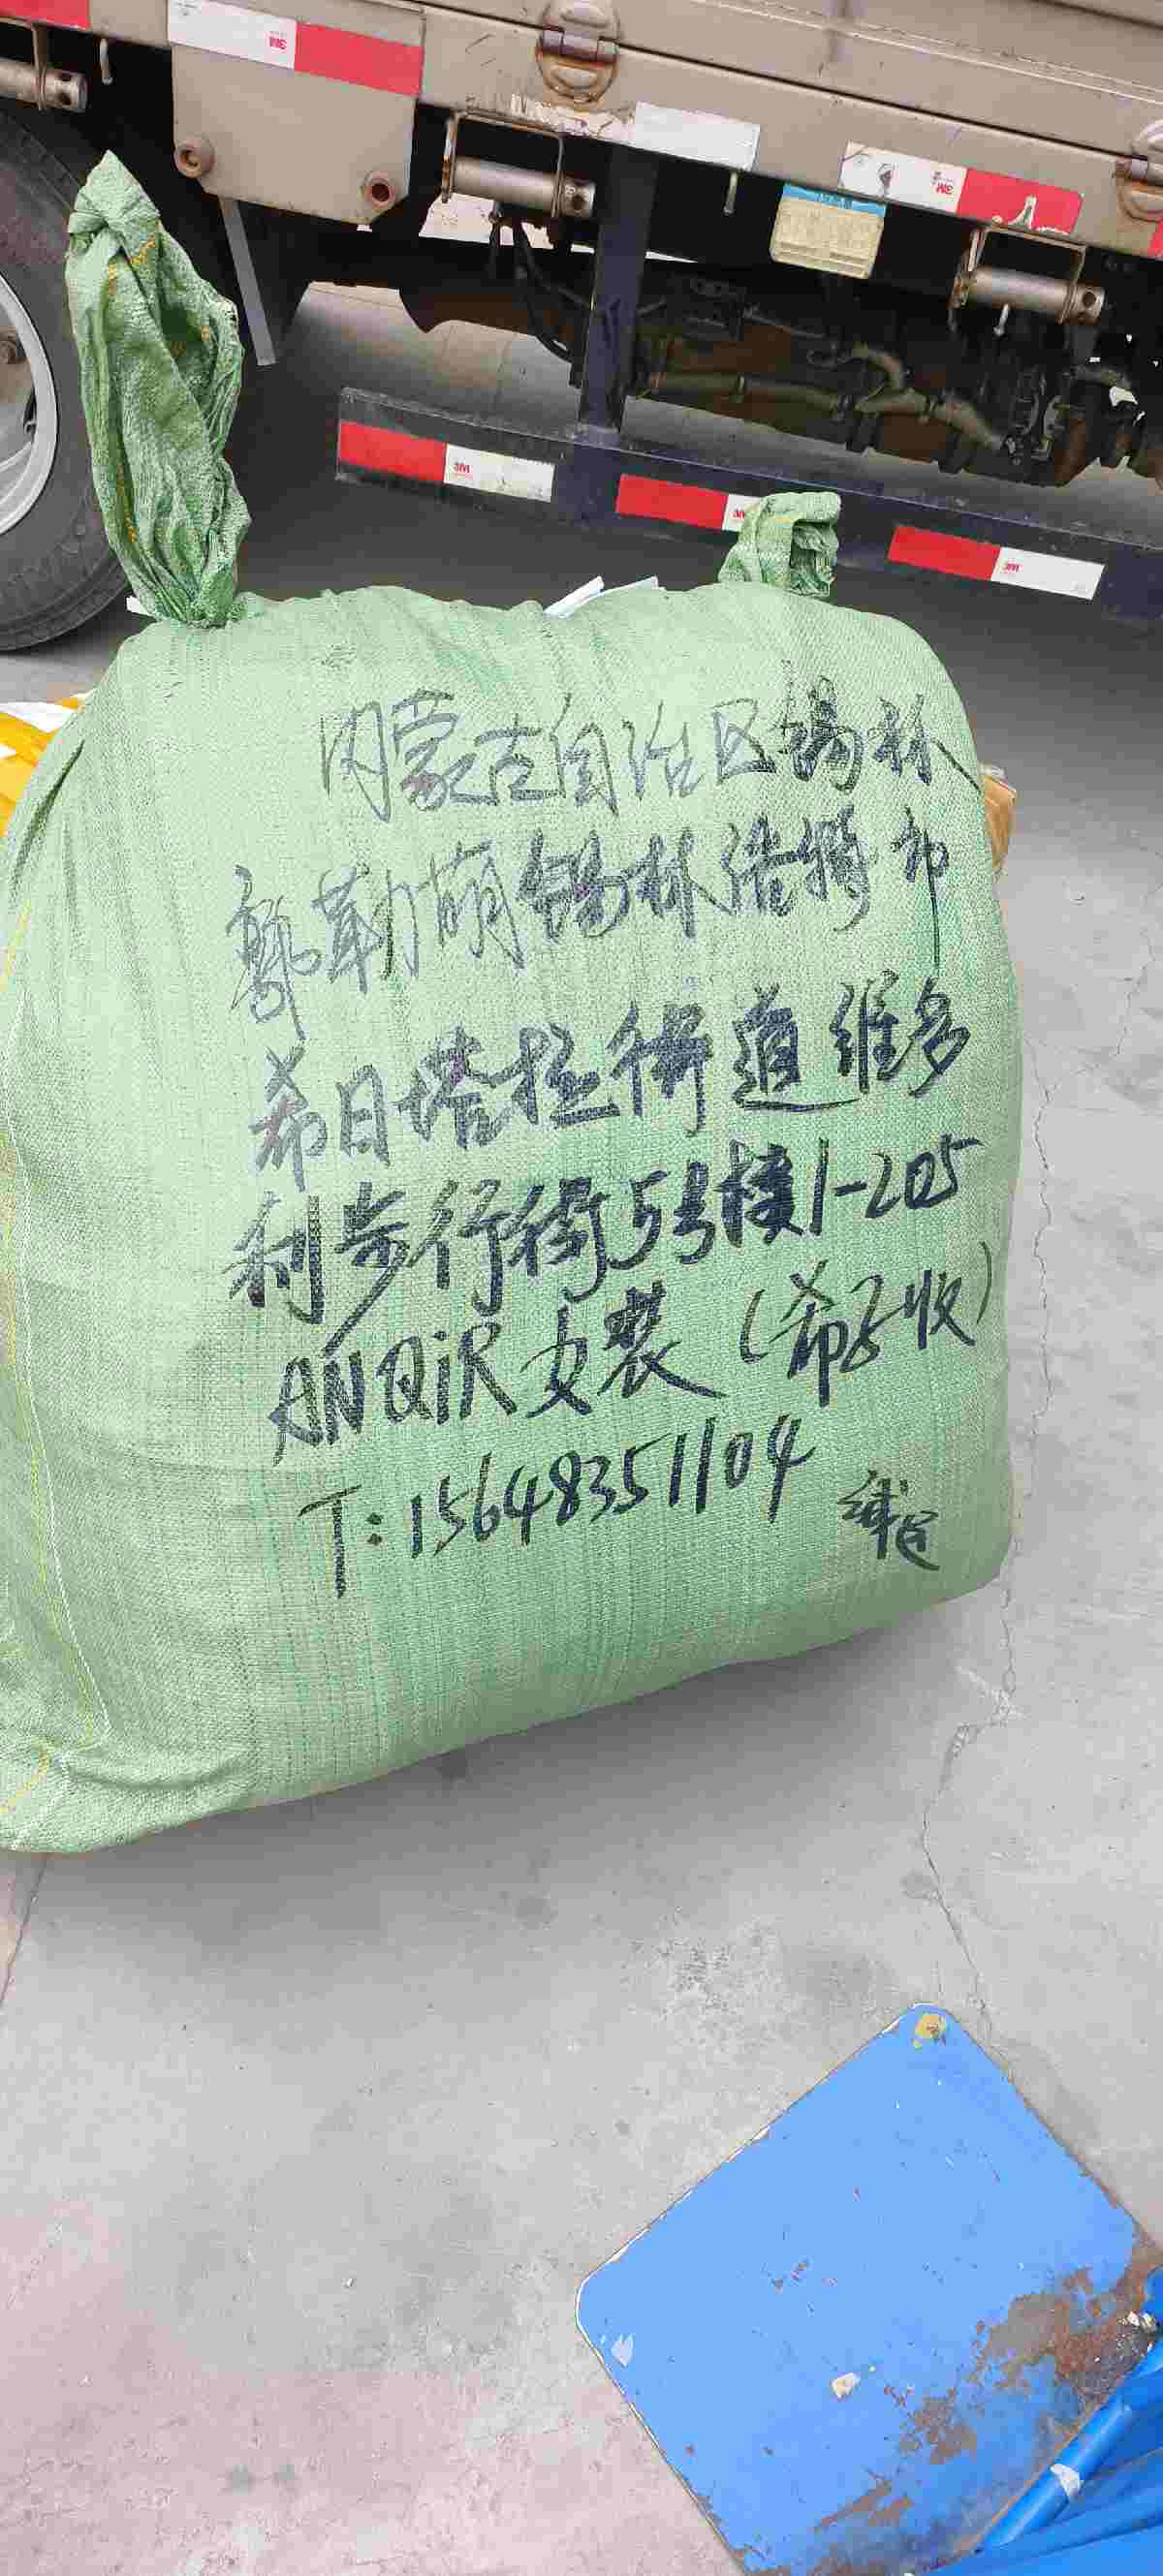 3M
3M
3M
3M
3M
内蒙古自治区锡林
郭勒萌锡林浩特市
希日塔拉街道维多
利步行街5号楼1-205
ANQiR女装(希子收)
T:15648351104